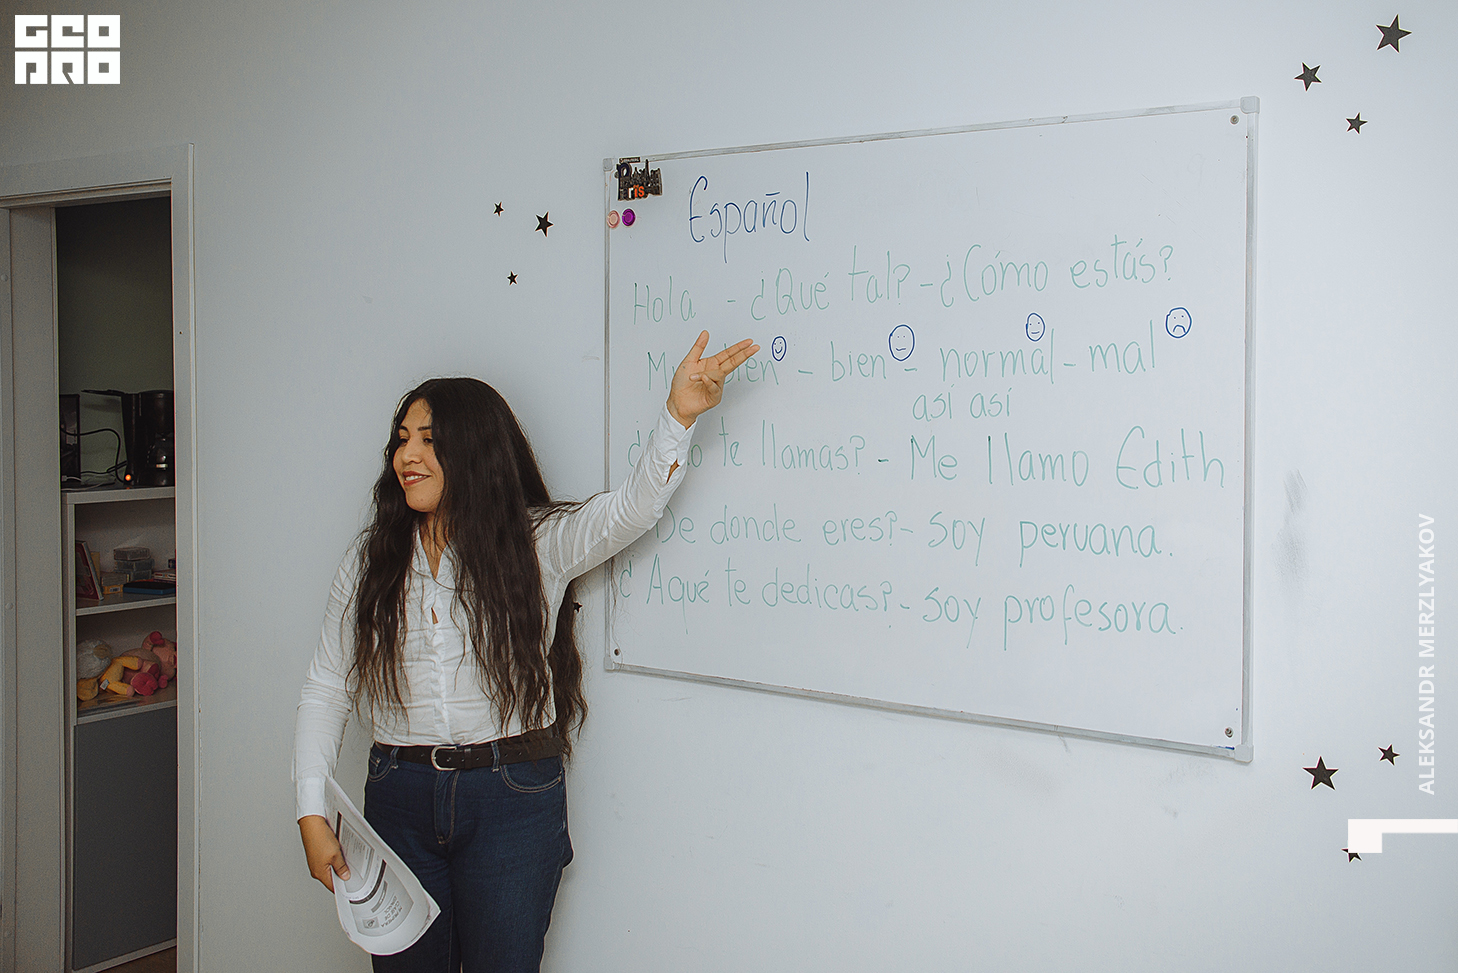 GEO
PRO
Español
Hola - ¿Qué tal? - ¿Cómo estás?
bien - bien - normal - mal
así así
te llamas? - Me llamo Edith
De donde eres? - Soy peruana.
¿ Aqué te dedicas? - Soy profesora.
ALEKSANDR MERZLYAKOV